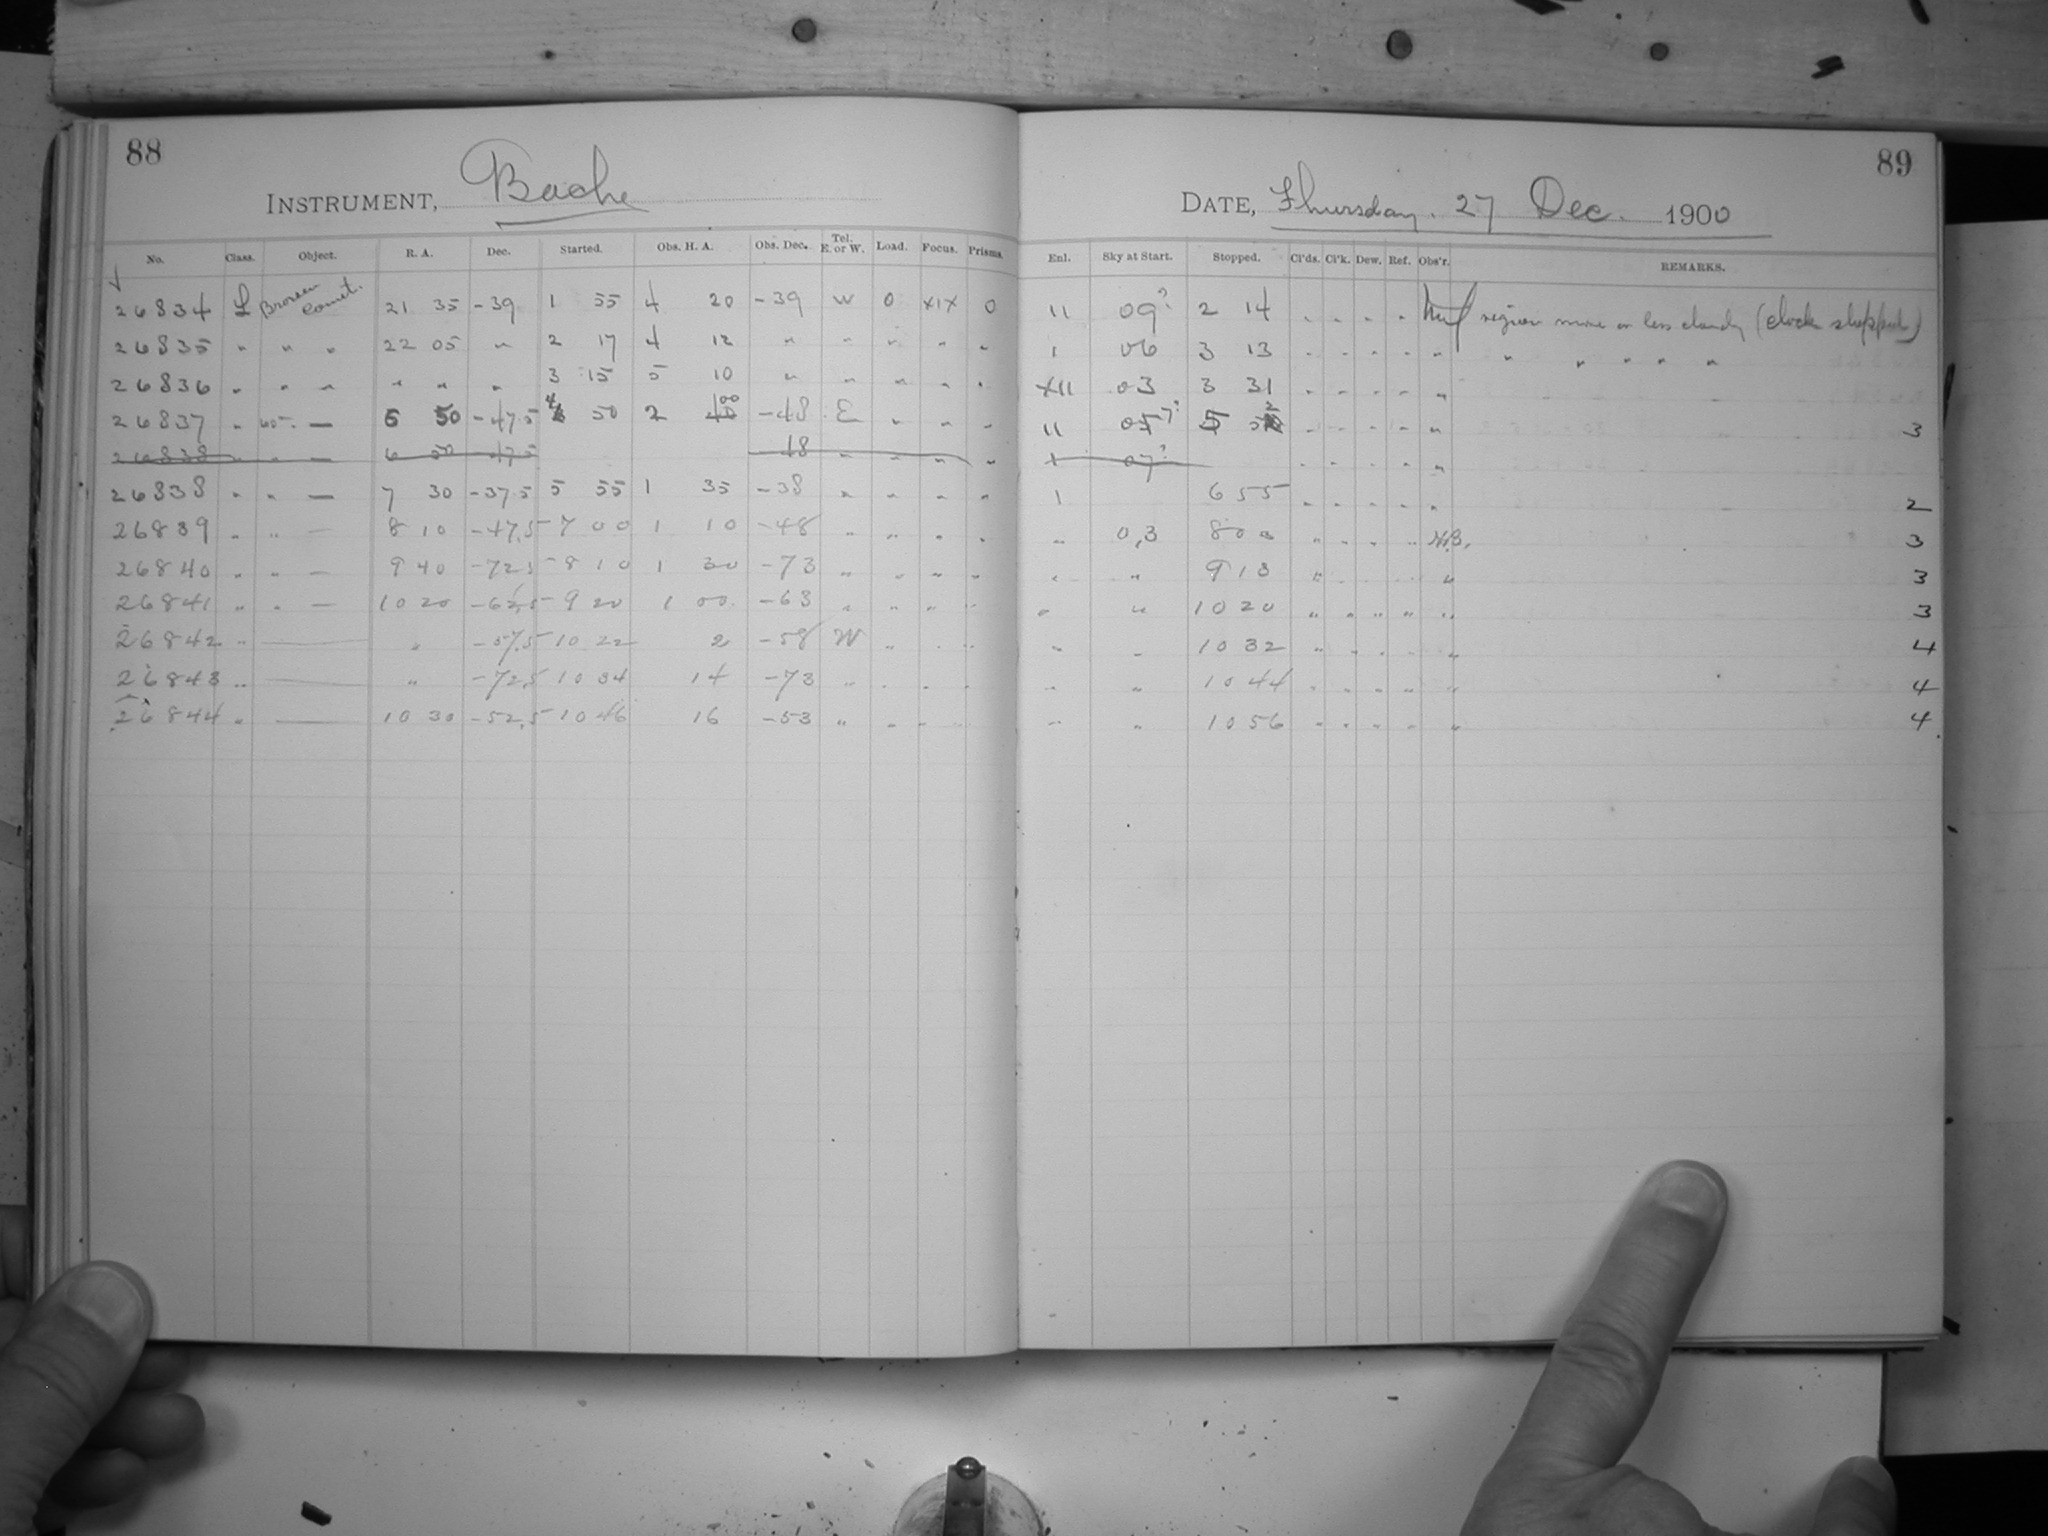 88
INSTRUMENT, Bache
No. Class. Object. R. A. Dec. Started. Obs. H. A. Obs. Dec. Tel. E. or W. Load. Focus. Prisms.
26834 L comet. 21 35 -39 1 55 4 20 -39 W 0 XIX 0
26835 " " " 22 05 " 2 17 4 12 " " " " "
26836 " " " " " " 3 15 5 10 " " " " "
26837 " — 50 -47.5 4 50 2 00 -48 E " " "
26838 " " — 6 50 -47.5 48 " " " "
26838 " " — 7 30 -37.5 5 55 1 35 -38 " " " "
26839 " " — 8 10 -47.5 7 00 1 10 -48 " " " "
26840 " " — 9 40 -72.5 8 10 1 30 -73 " " " "
26841 " " — 10 20 -62.5 9 20 1 00 -63 " " " "
26842 " — " -57.5 10 22 2 -58 W " " "
26843 " — " -72.5 10 34 14 -73 " " " "
26844 " — 10 30 -52.5 10 46 16 -53 " " " "
89
DATE, Thursday. 27 Dec. 1900
Enl. Sky at Start. Stopped. Cl'ds. Cl'k. Dew. Ref. Obs'r. REMARKS.
11 09? 2 14 " " " " region more or less cloudy (clock stopped)
1 06 3 13 " " " " " " " " " "
XII 03 3 31 " " " " "
11 5 52 " " " " " 3
1 07? " " " " "
1 6 55 " " " " " 2
" 0,3 8 00 " " " " 3
" " 9 13 " " " " " 3
" " 10 20 " " " " " 3
" " 10 32 " " " " " 4
" " 10 44 " " " " " 4
" " 10 56 " " " " " 4